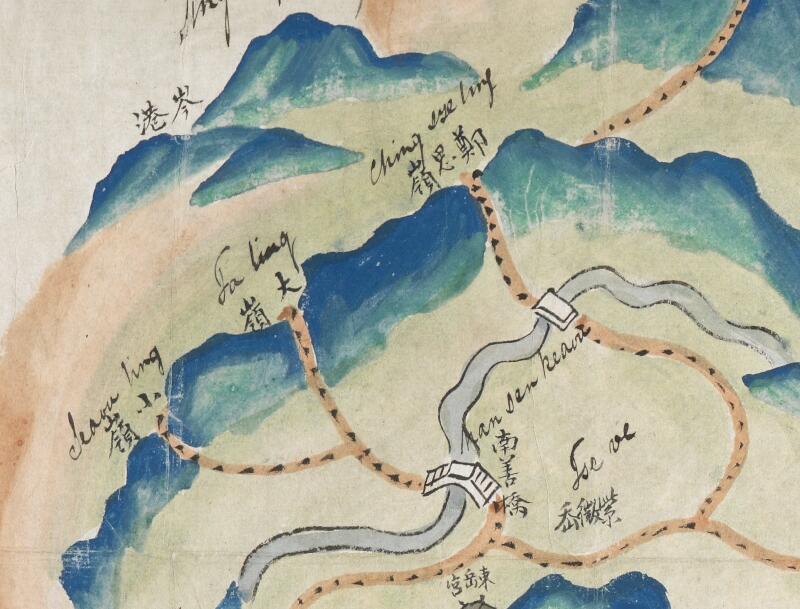 岑港
ching sze ling
鄭思嶺
Ta ling
大嶺
Seaou ling
小嶺
nan sen keaou
南善橋
Tse ve
紫微岙
東岳宮